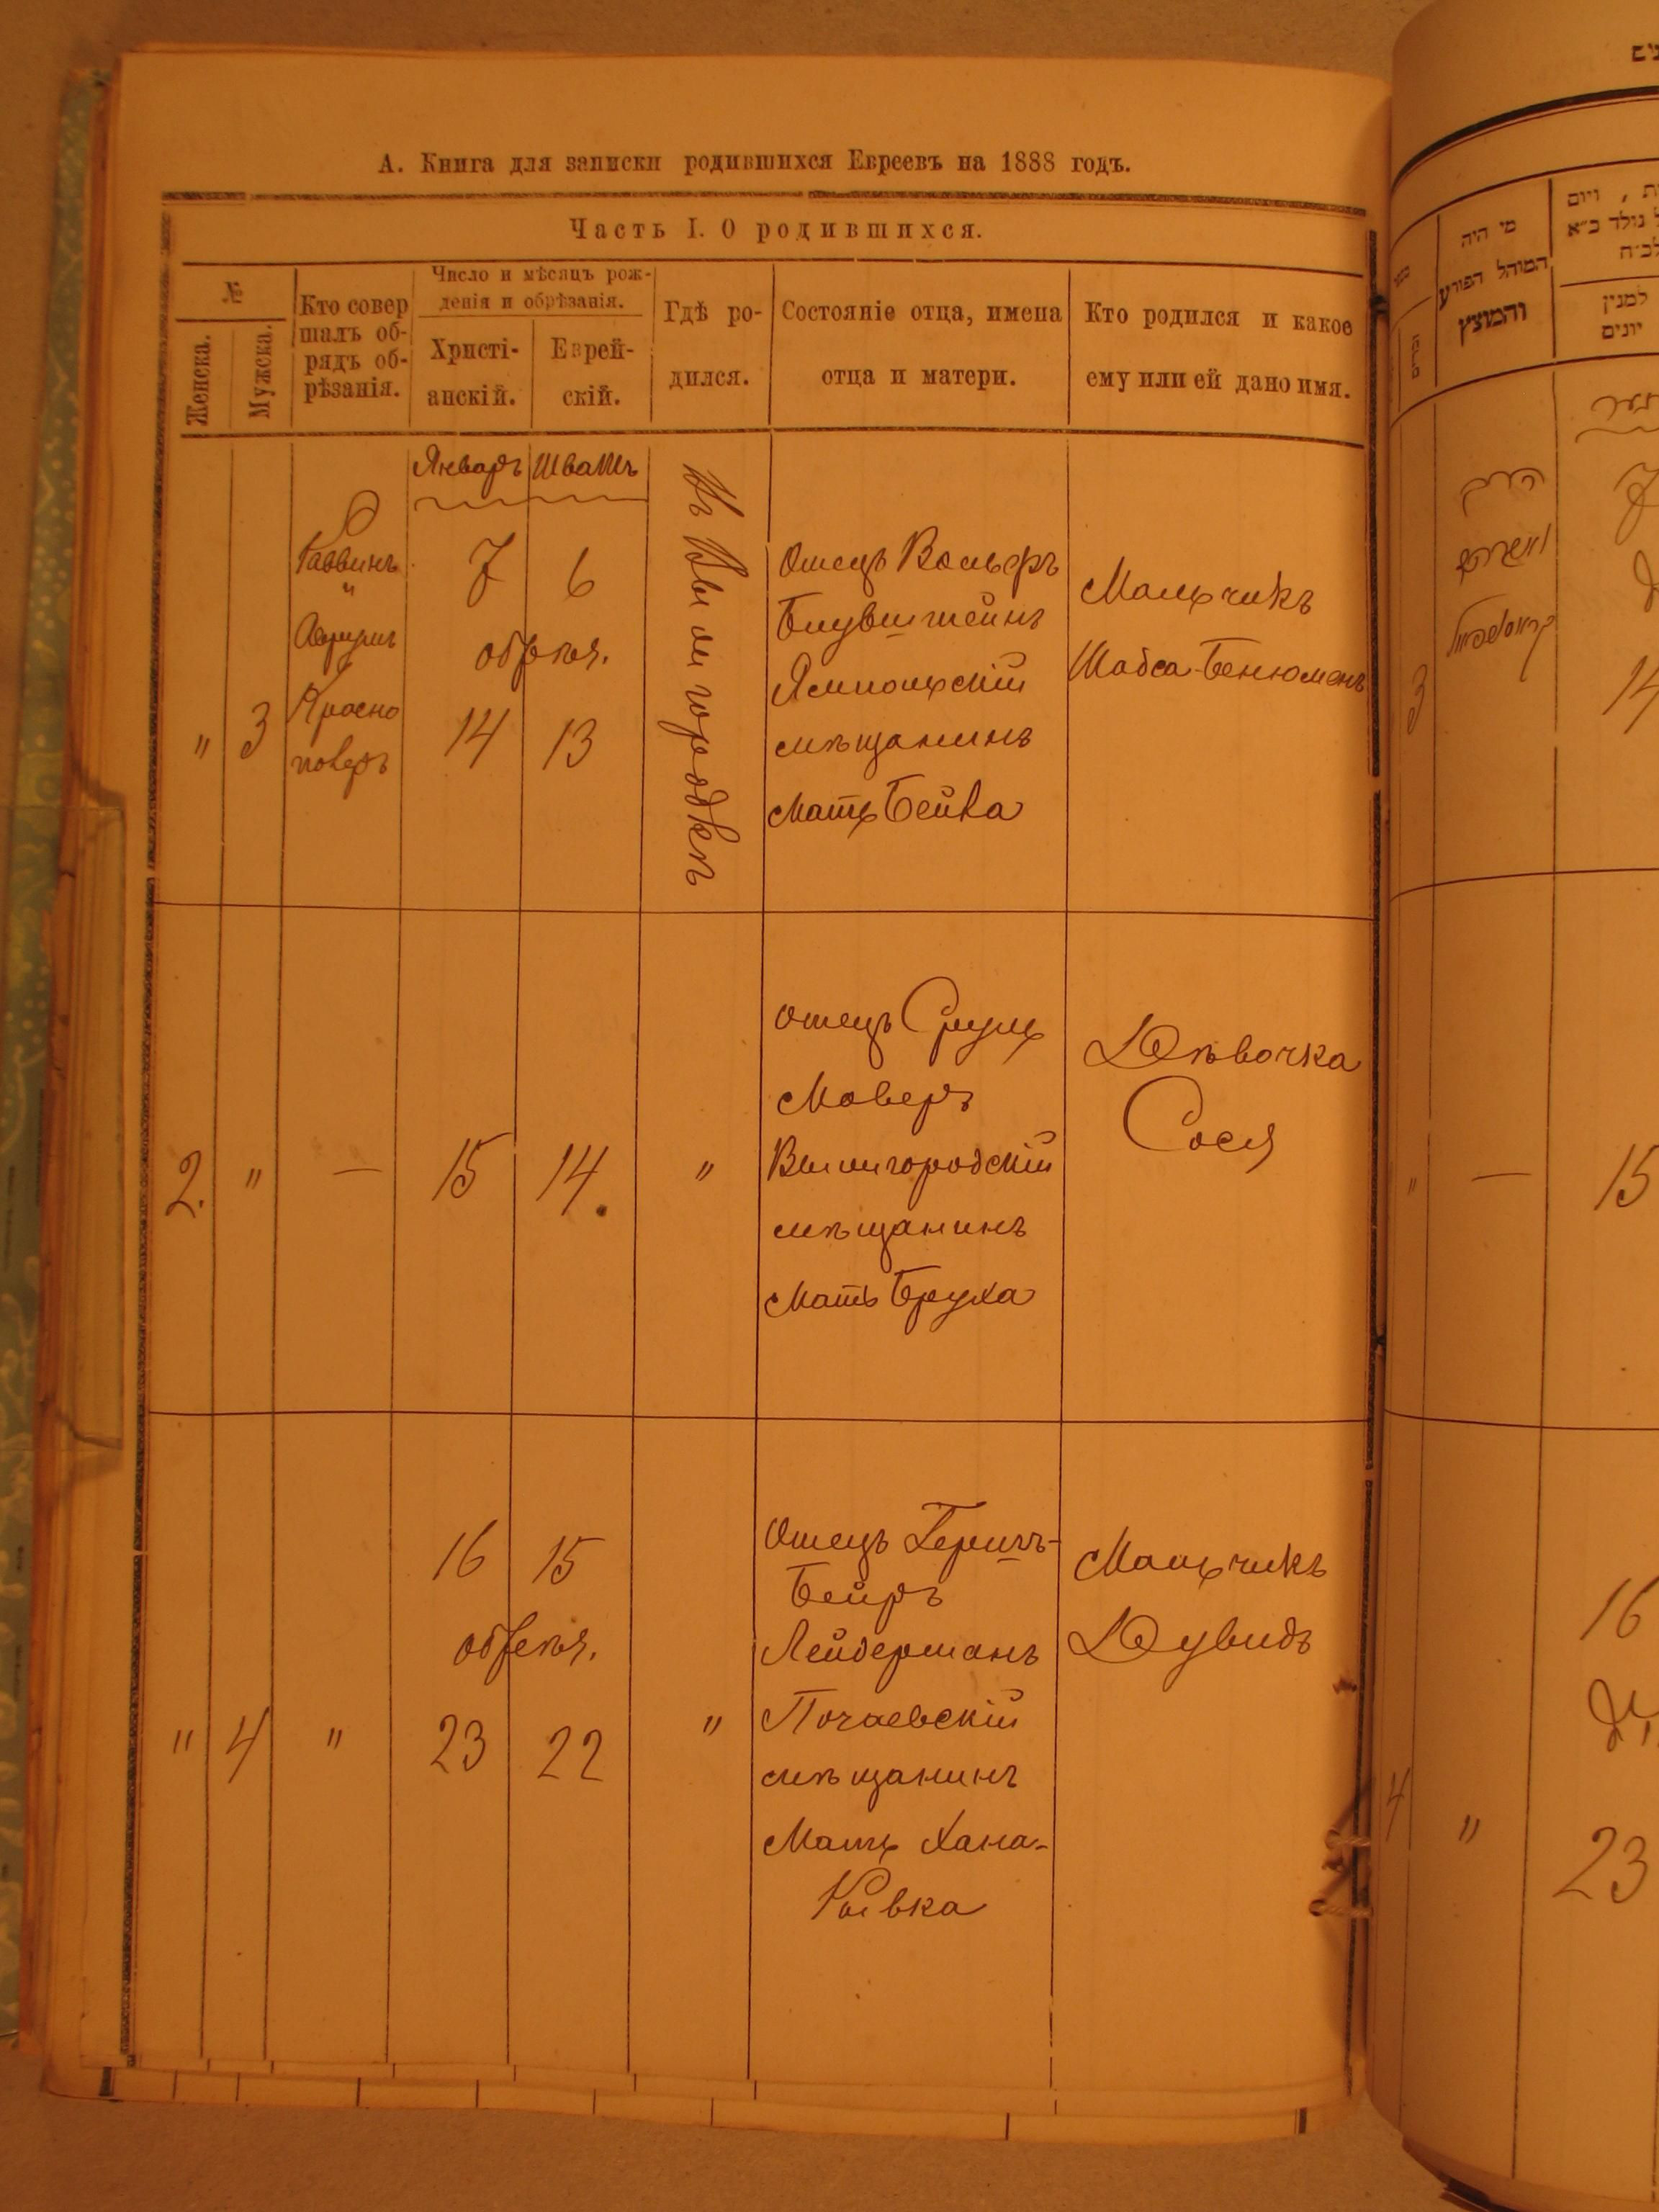 А. Книга для записки родившихся Евреевъ на 1888 годъ.
Часть I. О родившихся.
№
Женска.
Мужска.
Кто совер
шалъ об-
рядъ об-
рѣзанія.
Число и мѣсяцъ рож-
денія и обрѣзанія.
Христі-
анскій.
Еврей-
скій.
Гдѣ ро-
дился.
Состояніе отца, имена
отца и матери.
Кто родился и какое
ему или ей дано имя.
Январь
Шватъ
"
3
Раввинъ
"
Красно
поверъ
7
6
обрѣзн.
14
13
Въ Вышгородкѣ
Отецъ Вольфъ
Блувштейнъ
Ямпольскій
мѣщанинъ
Мать Бейла
Мальчикъ
Шабса-Бенюменъ
2.
"
—
15
14.
"
Отецъ Сруль
Моверъ
Вышгородскій
мѣщанинъ
Мать Бруха
Дѣвочка
Сося
"
4
"
16
15
обрѣзн.
23
22
"
Отецъ Гершъ-
Бейръ
Лейдерманъ
Почаевскій
мѣщанинъ
Мать Хана-
Рывка
Мальчикъ
Дувидъ
מי היה
המוהל הפורע
והמוצץ
ויום
נולד ב״א
לב״ח
למנין
יונים
3
7
14
"
—
15
16
4
"
23